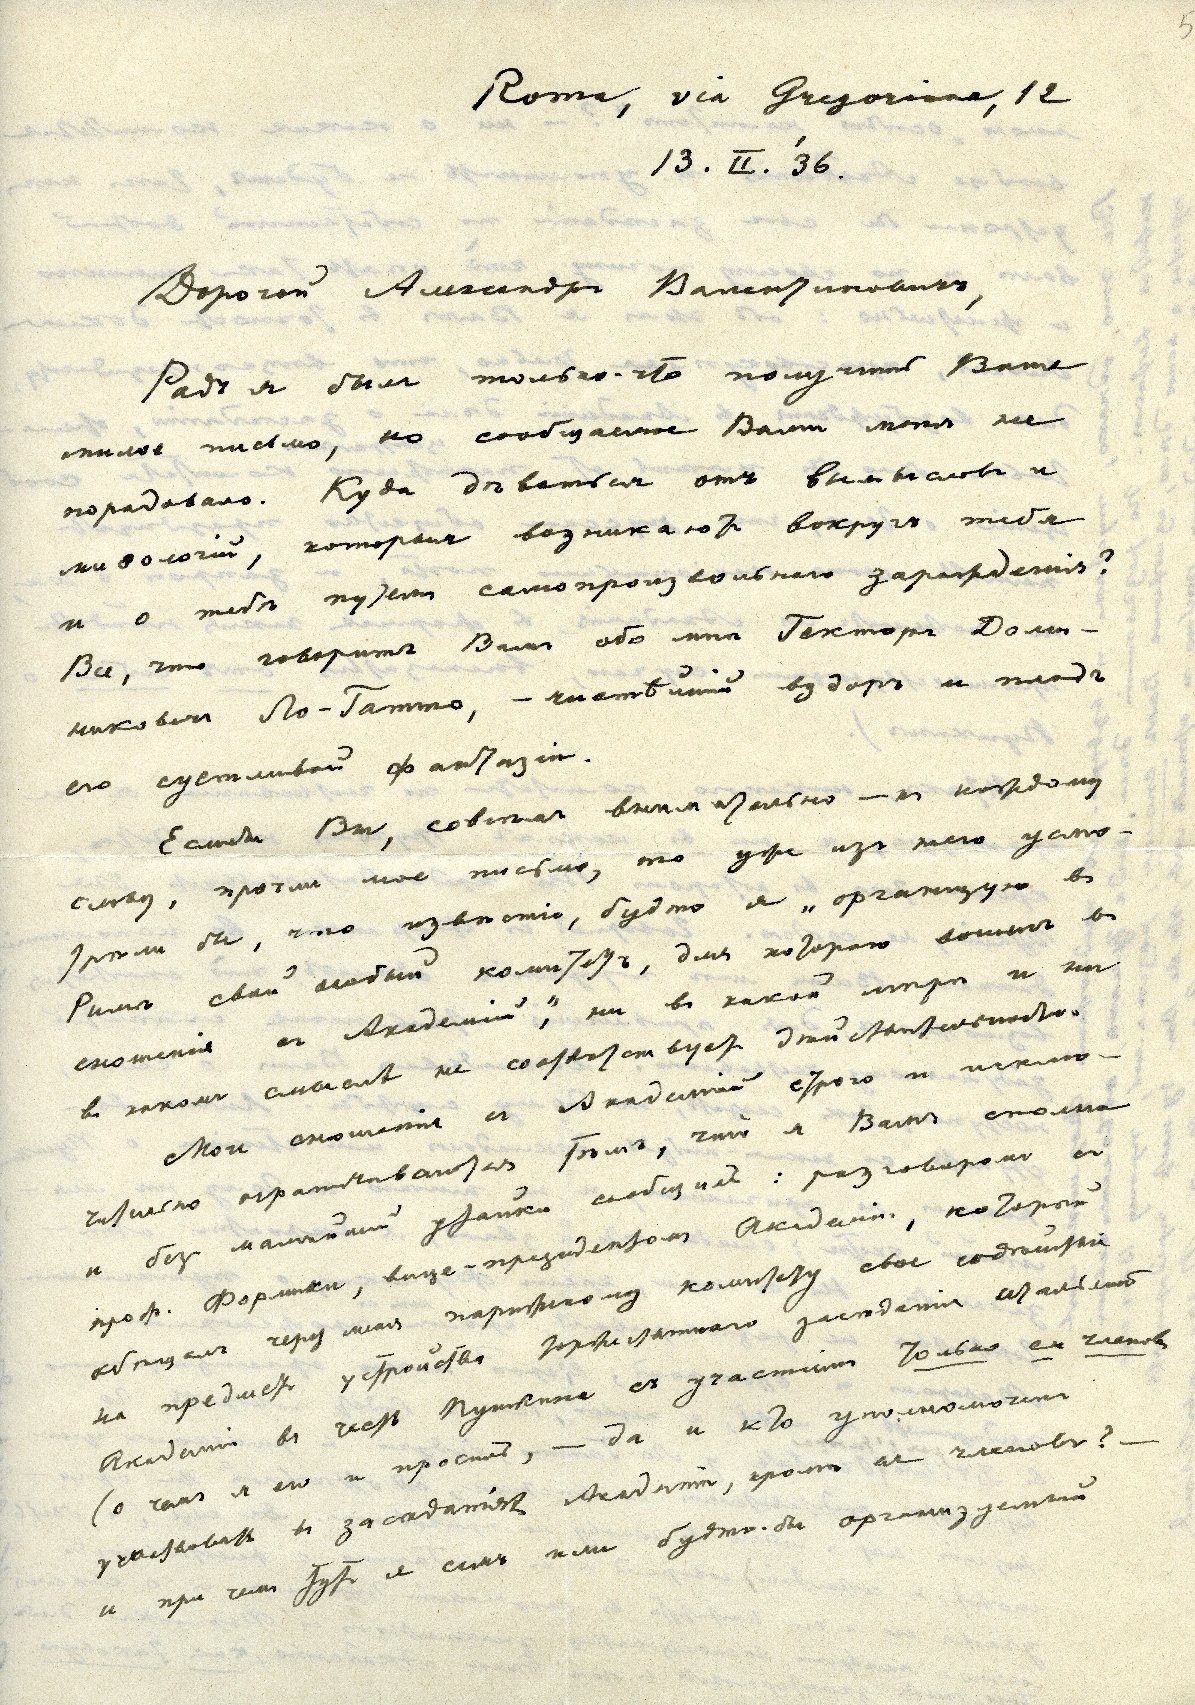 5
Roma, via Gregoriana, 12
13. II. '36.
Дорогой Александръ Валентиновичъ,
Радъ я былъ только-что получить Ваше
милое письмо, но сообщаемое Вами меня не
порадовало. Куда дѣваться отъ вымысловъ и
миѳологій, которыя возникаютъ вокругъ тебя
и о тебѣ путемъ самопроизвольнаго зарожденія?
Все, что говоритъ Вамъ обо мнѣ Гекторъ Доми-
никовичъ Ло-Гатто, – чистѣйшій вздоръ и плодъ
его суетливой фантазіи.
Если бы Вы, совѣтуя внимательно – къ каждому
слову, прочли мое письмо, то уже изъ него усмо-
трѣли бы, что извѣстіе, будто я „организую въ
Римѣ свой особый комитетъ, для котораго вошелъ въ
сношенія съ Академіей", ни въ какой мѣрѣ и ни
въ какомъ смыслѣ не соотвѣтствуетъ дѣйствительности.
Мои сношенія съ Академіей строго и исклю-
чительно ограничиваются тѣмъ, что я Вамъ сполна
и безъ малѣйшей утайки сообщилъ: разговоромъ съ
проф. Формики, вице-президентомъ Академіи, который
обѣщалъ черезъ меня парижскому комитету свое содѣйствіе
на предметъ устройства торжественнаго засѣданія Итальянской
Академіи въ честь Пушкина съ участіемъ только ея членовъ
(о чемъ я его и просилъ, – да и кто уполномоченъ
участвовать въ засѣданіяхъ Академіи, кромѣ ея членовъ? –
и при чемъ тутъ я самъ или будто-бы организуемый